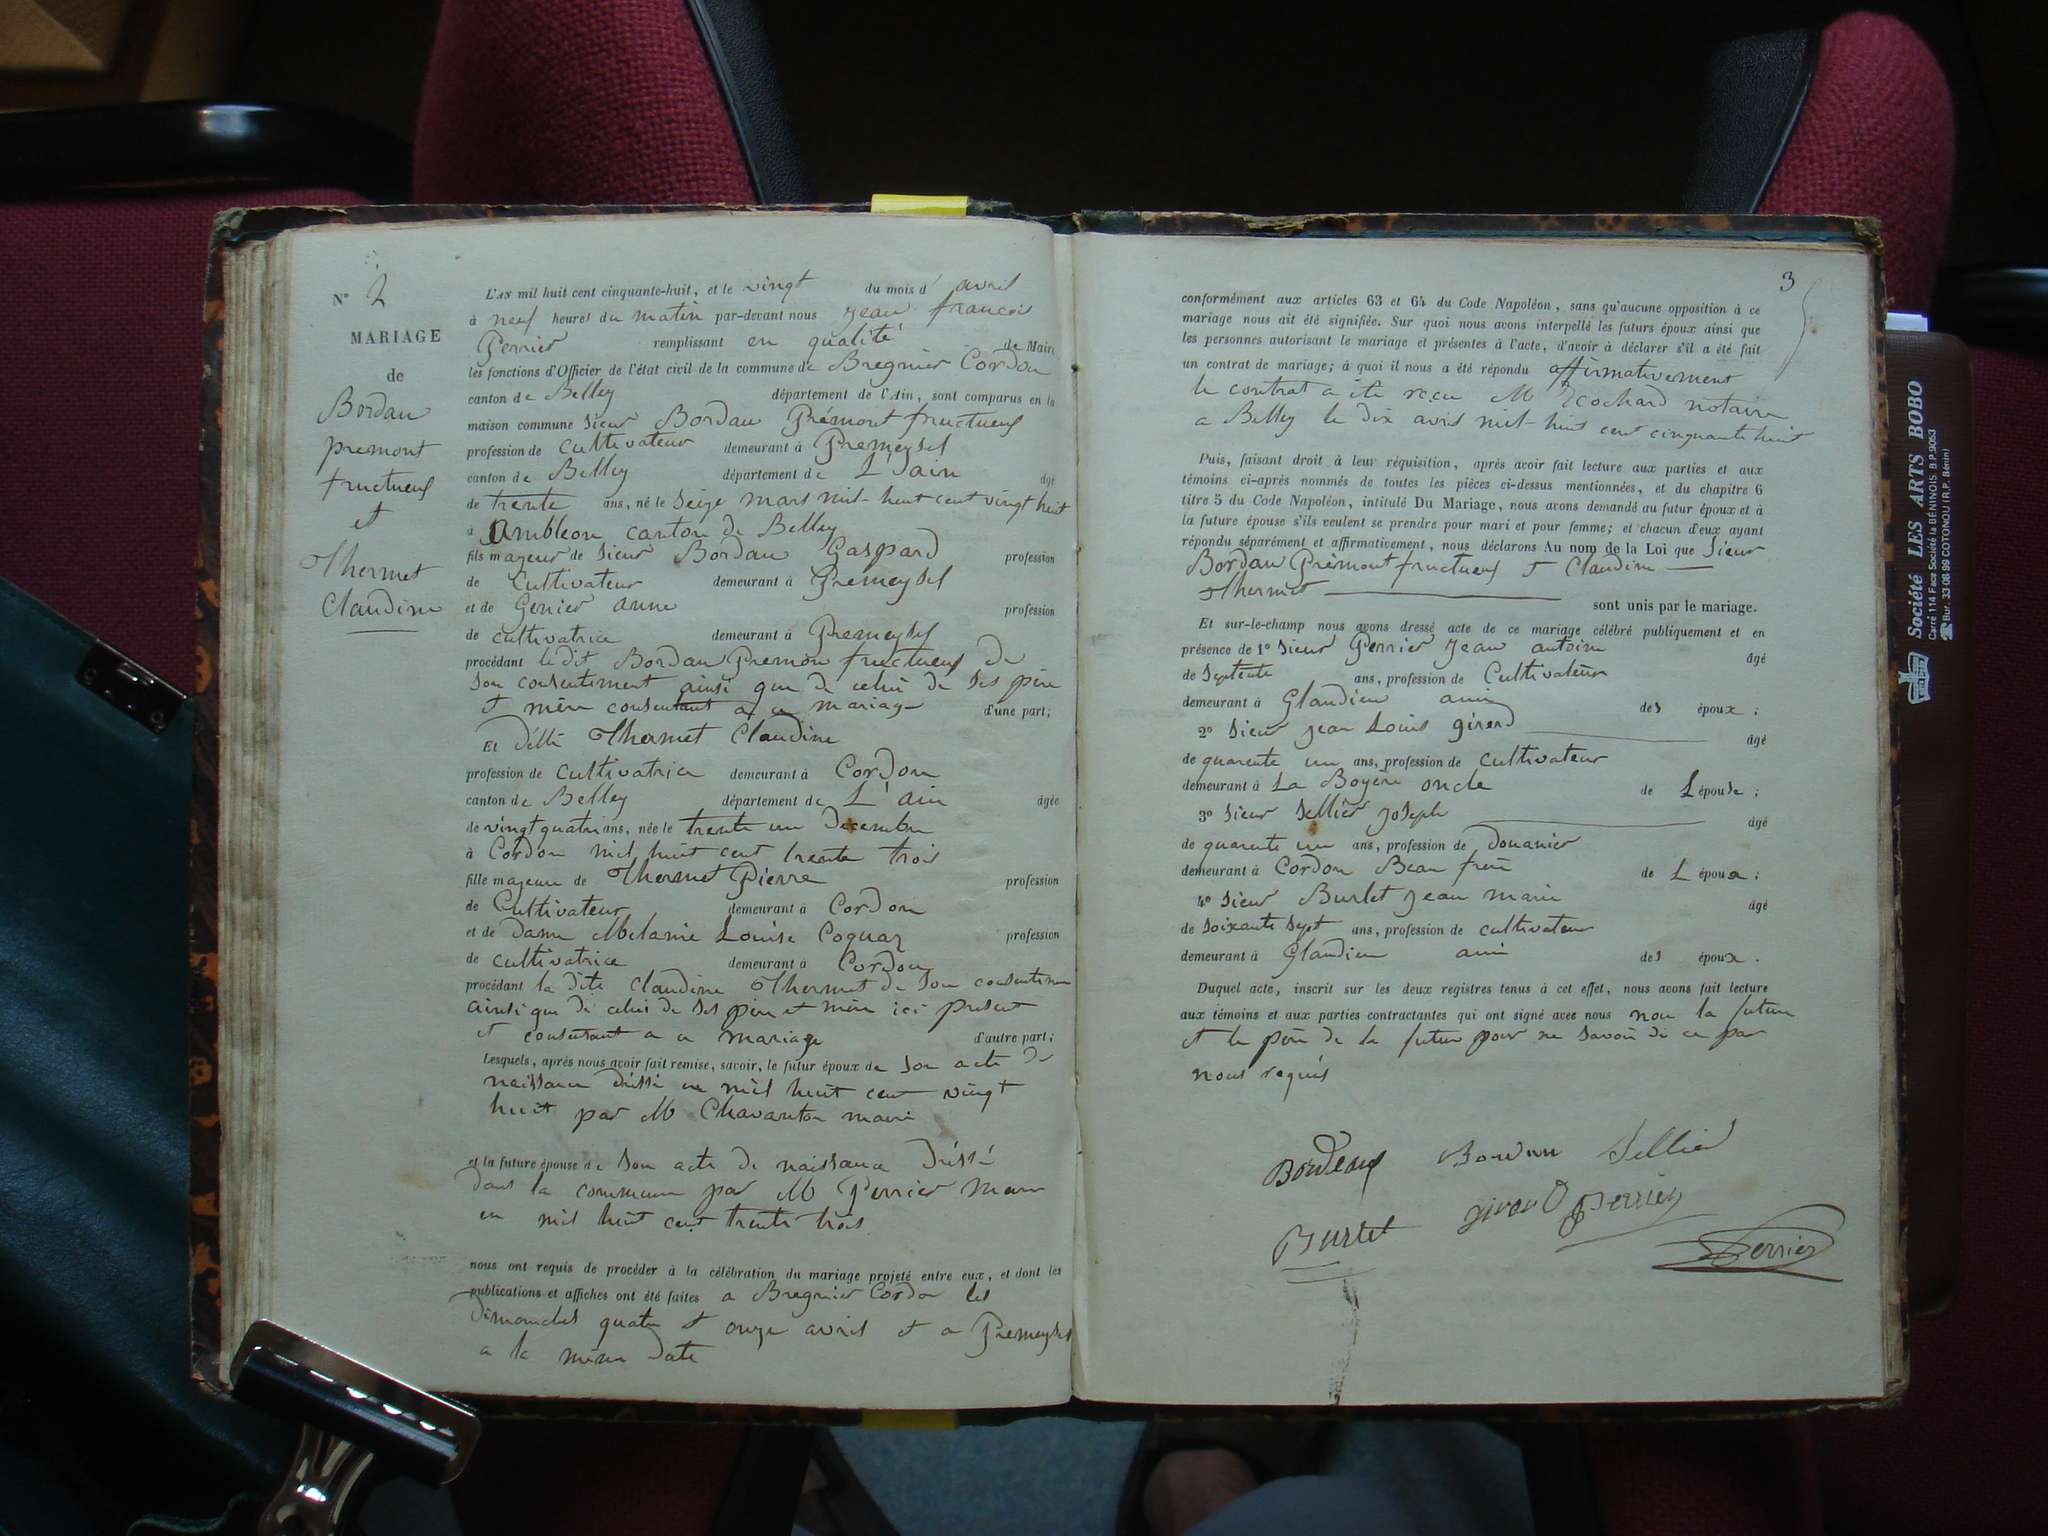 N° 2
MARIAGE
de
Bordau
premont
fructueux
et
Thermet
Claudine
L'AN mil huit cent cinquante-huit, et le vingt du mois d' avril
à neuf heures du matin par-devant nous Jean françois
Perrier remplissant en qualité de Maire
les fonctions d'Officier de l'état civil de la commune de Bregnier Cordon
canton de Belley département de l'Ain, sont comparus en la
maison commune Sieur Bordau Prémont fructueux
profession de cultivateur demeurant à Premeysel
canton de Belley département de L'ain âgé
de trente ans, né le Seize mars mil-huit cent vingt huit
à Ambleon canton de Belley
fils majeur de Sieur Bordau Gaspard profession
de Cultivateur demeurant à Premeysel
et de Genier anne profession
de cultivatrice demeurant à Premeysel
procédant le dit Bordau Premon fructueux de
Son consentement ainsi que de celui de ses père
et mère consentant a ce mariage d'une part;
Et délle Thermet Claudine
profession de cultivatrice demeurant à Cordon
canton de Belley département de L'ain âgée
de vingt quatre ans, née le trente un Decembre
à Cordon mil huit cent trente trois
fille majeure de Thermet Pierre profession
de Cultivateur demeurant à Cordon
et de Dame Melanie Louise Coquaz profession
de cultivatrice demeurant à Cordon
procédant la dite Claudine Thermet de Son consenteme
ainsi que de celui de ses père et mère ici present
et consentant a ce mariage d'autre part;
Lesquels, après nous avoir fait remise, savoir, le futur époux de son acte de
naissance dréssé en mil huit cent vingt
huit par M Chavanton maire
et la future épouse de Son acte de naissance Dréssé
dans la commune par M Perrier Maire
en mil huit cent trente trois
nous ont requis de procéder à la célébration du mariage projeté entre eux, et dont les
publications et affiches ont été faites a Bregnier Cordon les
Dimanches quatre et onze avril et a Premeysel
a la même date
3
conformément aux articles 63 et 64 du Code Napoléon, sans qu'aucune opposition à ce
mariage nous ait été signifiée. Sur quoi nous avons interpellé les futurs époux ainsi que
les personnes autorisant le mariage et présentes à l'acte, d'avoir à déclarer s'il a été fait
un contrat de mariage; à quoi il nous a été répondu affirmativement
le contrat a été recu M Ecochard notaire
a Belley le dix avril mil-huit cent cinquante huit
Puis, faisant droit à leur réquisition, après avoir fait lecture aux parties et aux
témoins ci-après nommés de toutes les pièces ci-dessus mentionnées, et du chapitre 6
titre 5 du Code Napoléon, intitulé Du Mariage, nous avons demandé au futur époux et à
la future épouse s'ils veulent se prendre pour mari et pour femme; et chacun d'eux ayant
répondu séparément et affirmativement, nous déclarons Au nom de la Loi que Sieur
Bordau Prémont fructueux et Claudine
Thermet sont unis par le mariage.
Et sur-le-champ nous avons dressé acte de ce mariage célébré publiquement et en
présence de 1° Sieur Perrier Jean antoine âgé
de Septente ans, profession de Cultivateur
demeurant à Glandieu ami des époux;
2° Sieur Jean Louis girerd âgé
de quarente un ans, profession de cultivateur
demeurant à La Boyère oncle de L épouse;
3° Sieur Sellier Joseph âgé
de quarente un ans, profession de douanier
demeurant à Cordon Beau frère de L époux;
4° Sieur Burlet Jean marie âgé
de Soixante Sept ans, profession de cultivateur
demeurant à Glandieu ami des époux.
Duquel acte, inscrit sur les deux registres tenus à cet effet, nous avons fait lecture
aux témoins et aux parties contractantes qui ont signé avec nous non la future
et le père de la futur pour ne savoir de ce par
nous requis
Bordeaux Bordau Sellier
Burlet girerd Perrier
Perrier
Société LES ARTS BOBO
Carré 114 Face Société la BÉNINOIS B.P.9053
Bur. 33-08-99 COTONOU (R.P. Bénin)